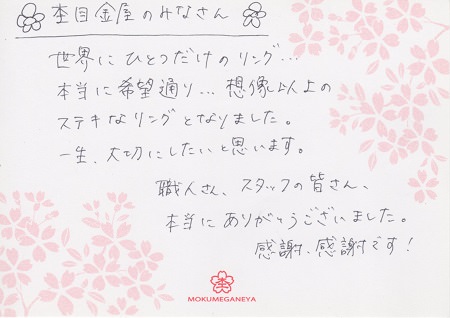 杢目金屋のみなさん
世界にひとつだけのリング…
本当に希望通り…想像以上の
ステキなリングとなりました。
一生、大切にしたいと思います。
職人さん、スタッフの皆さん、
本当にありがとうございました。
感謝、感謝です！
杢
MOKUMEGANEYA